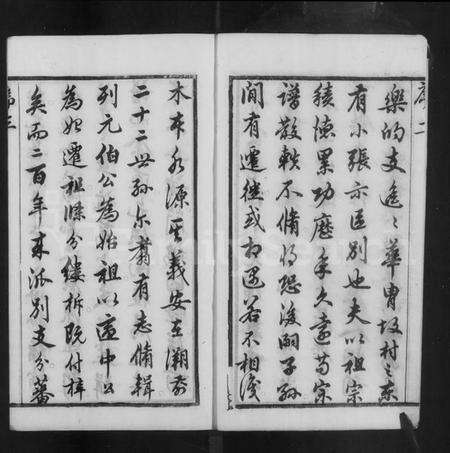 序二
樂的支遙遙華胄坂村之東
有小張示區別也夫以祖宗
積德累功歷年久遠苟宗
譜散軼不脩將恐後嗣子孫
間有遷徙或相遇若不相識
木本水源其義安在溯前
二十二世孫尔翥有志脩輯
列元伯公為始祖以適中公
為始遷祖條分縷析既付梓
矣而二百年來派別支分蕃
序三